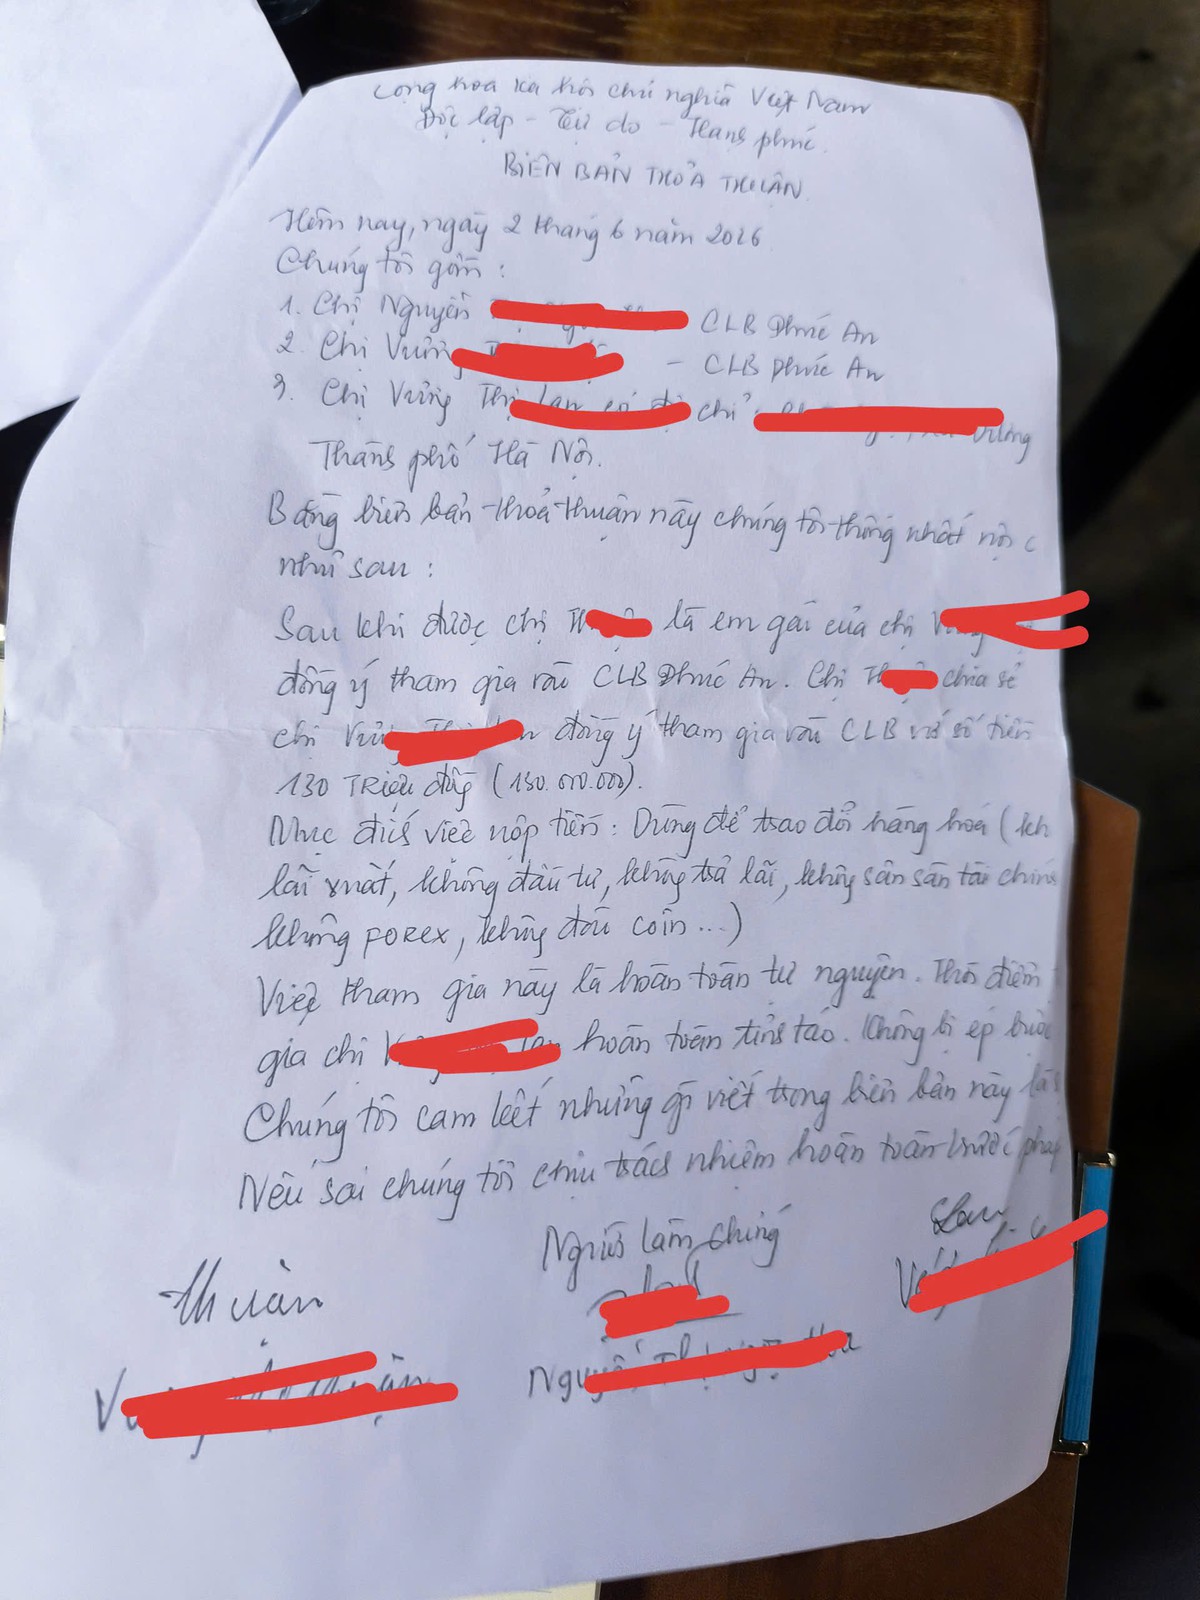 Cộng hòa xã hội chủ nghĩa Việt Nam
Độc lập - Tự do - Hạnh phúc.
BIÊN BẢN THỎA THUẬN
Hôm nay, ngày 2 tháng 6 năm 2026
Chúng tôi gồm :
1. Chị Nguyễn CLB Phúc An
2. Chị Vương - CLB Phúc An
3. Chị Vương Thị chỉ
Thành phố Hà Nội.
Bằng biên bản thoả thuận này chúng tôi thống nhất nội
như sau :
Sau khi được chị là em gái của chị
đồng ý tham gia vào CLB Phúc An. Chị chia sẻ
chị đồng ý tham gia vào CLB với số tiền
130 TRiệu đồng (130.000.000).
Mục đích việc nộp tiền : Dùng để trao đổi hàng hoá (kh
lãi xuất, không đầu tư, không trả lãi, không sàn sàn tài chính
không FOREX, không đầu coin ...)
Việc tham gia này là hoàn toàn tự nguyện. Thời điểm
gia chị hoàn toàn tỉnh táo. Không bị ép buộc
Chúng tôi cam kết những gì viết trong biên bản này là
Nếu sai chúng tôi chịu trách nhiệm hoàn toàn trước pháp
Người làm chứng
Lan
thuận